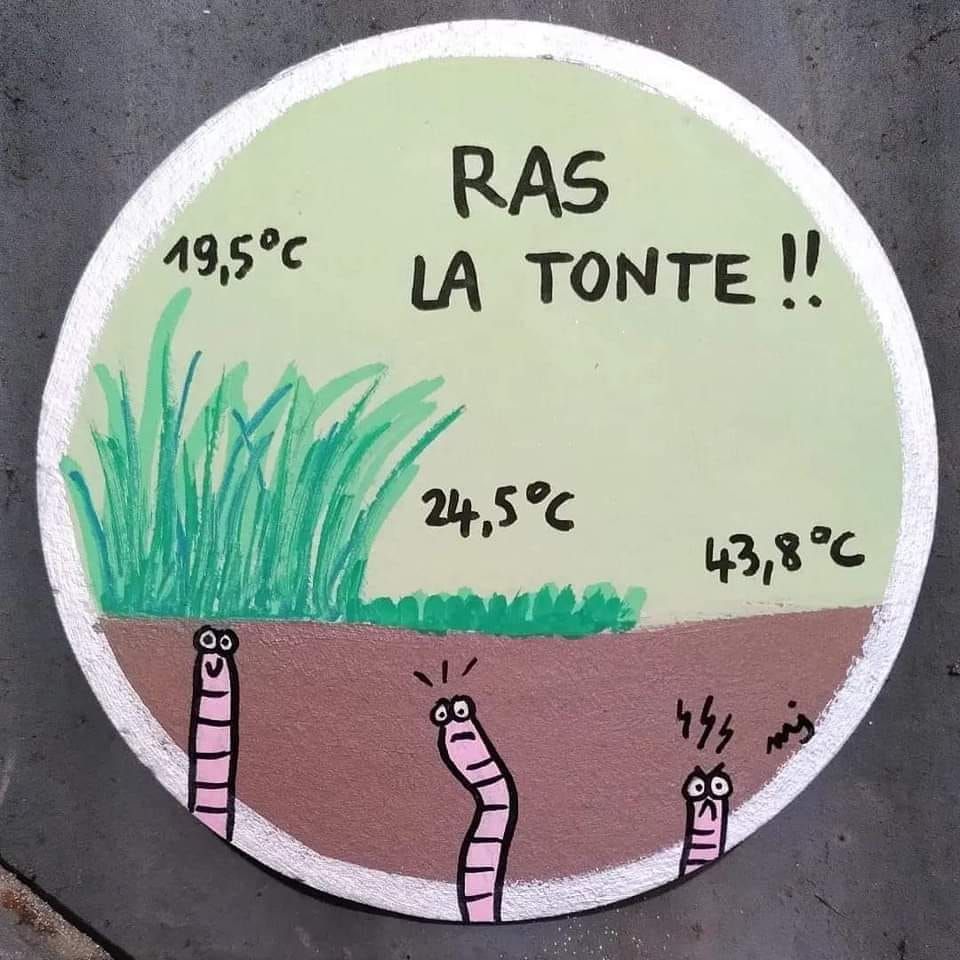 RAS
LA TONTE !!
19,5°C
24,5°C
43,8°C